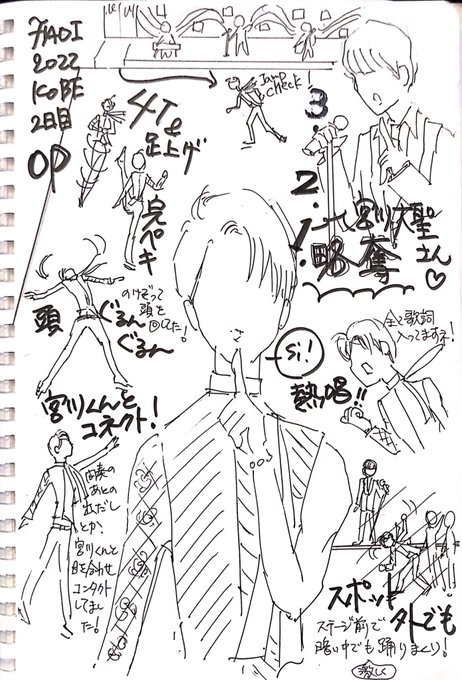 FAOI
2022
KOBE
2日目
OP
Jump
check!
4T&
足上げ
完ペキ
3.
2.
1.
宮川大聖
さん♡
略奪
頭
ぐるん
ぐるん
のけぞって
頭を
回してた!
Si!
全て歌詞
入ってますネ!
熱唱!!
宮川くんと
コネクト!
間奏の
あとの
出だし
とか、
宮川くんと
目を合わせ
コンタクト
してまし
た!
スポット
外でも
ステージ前で
暗い中でも踊りまくり!